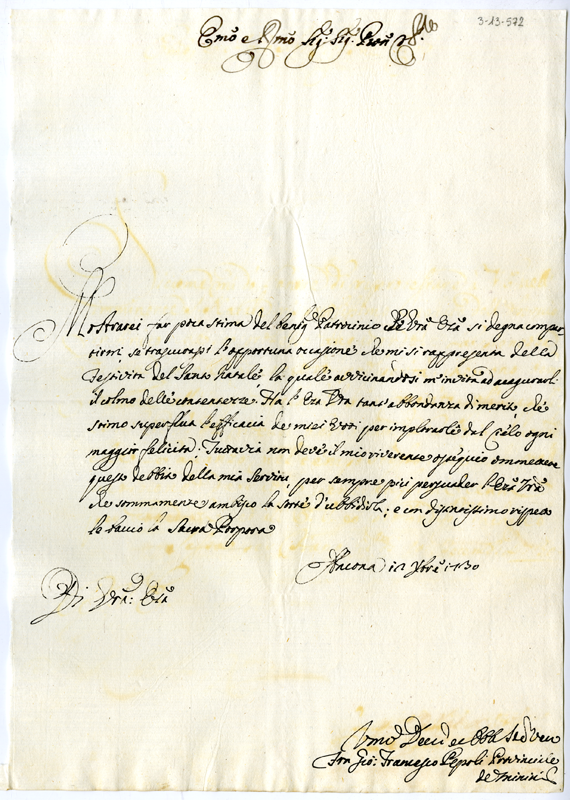 3-13-572
Emo e Rmo Sig: Sig: Pron Colmo
Mostrarei far poca stima del benigo Patrocinio che Vra Eza si degna compar-
tirmi, se trascurassi l'opportuna occasione che mi si rappresenta della
Festività del Santo Natale, la quale avvicinandosi m'invita ad augurarle
il colmo delle contentezze. Ha l'Eza Vra tant'abbondanza di merito, che
stimo superflua l'efficacia de miei Voti per implorarle dal Cielo ogni
maggior felicità. Tuttavia non deve il mio riverente ossequio ommettere
questo debito della mia Servitù, per sempre più persuader l'Eza Vra
che sommamente ambisco la sorte d'ubbidirla; e con disntissimo rispetto
le bacio la Sacra Porpora
Ancona 12 Xbre 1730
Di Vra: Eza
Umo Devo ed Obbo Sere Vero
Fra Gio: Francesco Pepoli Provinciale
de Minimi